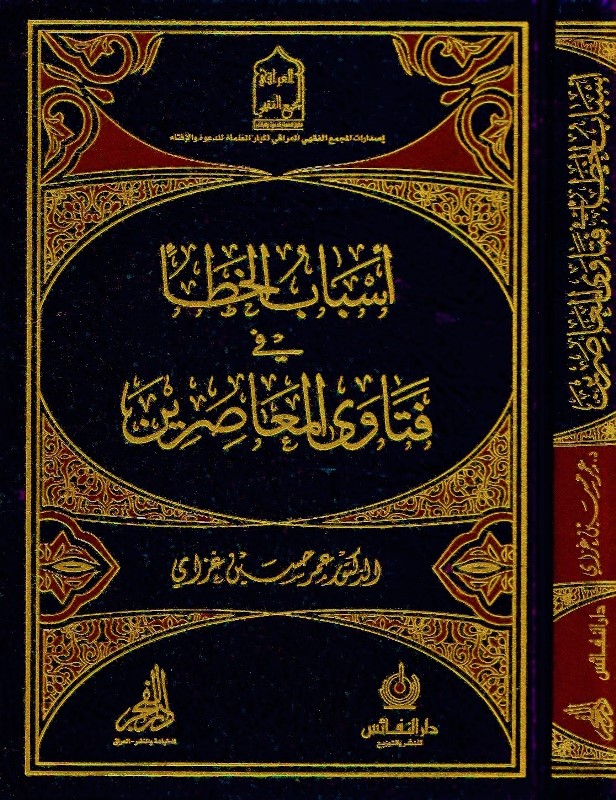 العراقي
المجمع الفقهي
إصدارات المجمع الفقهي العراقي لكبار العلماء للدعوة والإفتاء
أسباب الخطأ
في
فتاوى المعاصرين
الدكتور عمر حسين غزاي
دار النفائس
للنشر والتوزيع
دار الفجر
للطباعة والنشر - العراق
أسباب الخطأ في فتاوى المعاصرين
د. عمر حسين غزاي
دار النفائس
دار الفجر